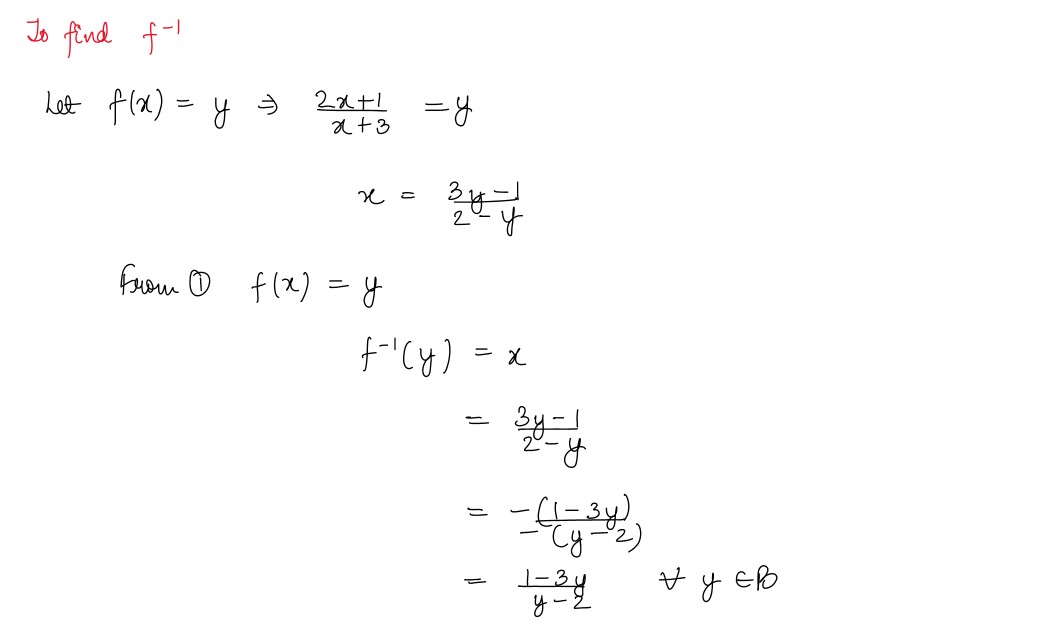 To find f⁻¹
Let f(x) = y ⇒ (2x+1)/(x+3) = y
x = (3y-1)/(2-y)
From ① f(x) = y
f⁻¹(y) = x
= (3y-1)/(2-y)
= -(1-3y)/-(y-2)
= (1-3y)/(y-2) ∀ y ∈ B